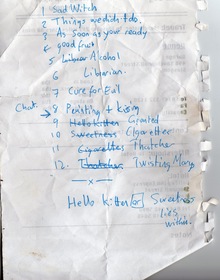 1 Sad Witch
2 Things we didn't do.
3 As soon as your ready
4 good fruit
5 Librar Alcohol
6 Librarian.
7 Cure for Evil
Chat. → 8 Persisting + Kissing
9 Hello Kitten Granted
10 Sweetness Cigarettes
11 Cigarettes Thatcher
12. Thatcher Twisting Mary
—x—
Hello Kitten or Sweetness
lies
within.